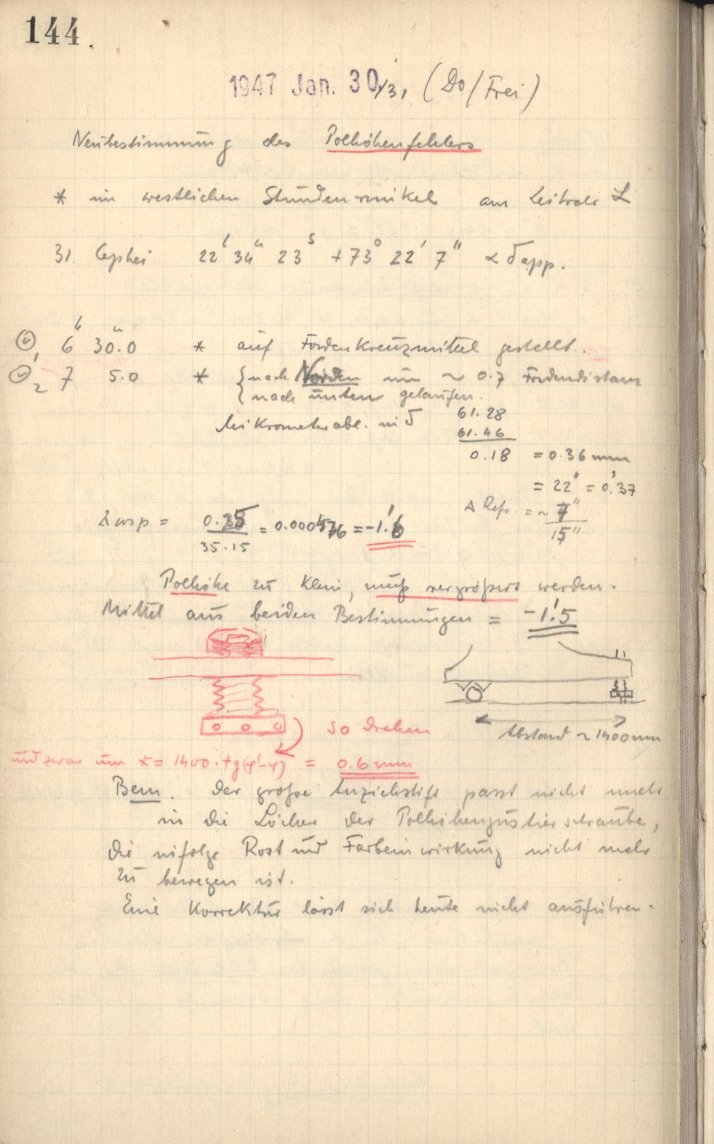 144.
1947 Jan. 30/31 (Do/Frei)
Neubestimmung des Polhöhenfehlers
* im westlichen Stundenwinkel am Leitrohr L
31 Cephei 22h 34m 23s +73° 22' 7" α δ app.
1 6h 30m.0 * auf Fadenkreuzmitte gestellt.
2 7 5.0 * { nach Norden um ~ 0.7 Fadendistanz
{ nach unten gelaufen.
Mikrometerabl. in δ 61.28
61.46
0.18 = 0.36 mm
= 22" = 0.'37
Δ Refr. = ~ 7"
15"
= 0.25 / 35.15 = = -1.'6
Polhöhe zu klein, muß vergrößert werden.
Mittel aus beiden Bestimmungen = -1.'5
so drehen
Abstand ~ 1400 mm
und zwar um x = 1400 · tg(φ'-φ) = 0.6 mm
Bem. Der große Anziehstift passt nicht mehr
in die Löcher der Polhöhenjustierschraube,
die infolge Rost und Farbeinwirkung nicht mehr
zu bewegen ist.
Eine Korrektur lässt sich heute nicht ausführen.